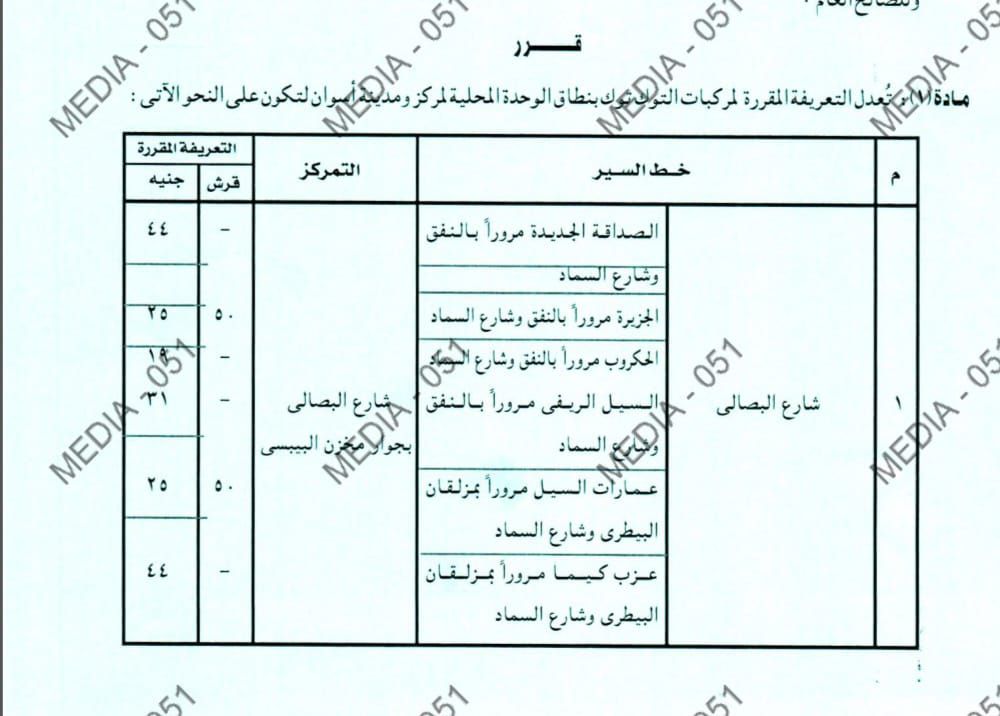 وللصالح العام .
قـــرر
مادة (١) : تُعدل التعريفة المقررة لمركبات التوك توك بنطاق الوحدة المحلية لمركز ومدينة أسوان لتكون على النحو الآتى :
م خط السير التمركز التعريفة المقررة
قرش جنيه
الصداقة الجديدة مروراً بالنفق - ٤٤
وشارع السماد
الجزيرة مروراً بالنفق وشارع السماد ٥٠ ٢٥
الحكروب مروراً بالنفق وشارع السماد - ١٩
١ شارع البصالى السيل الريفى مروراً بالنفق شارع البصالى - ٣١
وشارع السماد بجوار مخزن البيبسى
عمارات السيل مروراً بمزلقان ٥٠ ٢٥
البيطرى وشارع السماد
عزب كيما مروراً بمزلقان - ٤٤
البيطرى وشارع السماد
MEDIA - 051
MEDIA - 051
MEDIA - 051
MEDIA - 051
MEDIA - 051
MEDIA - 051
MEDIA - 051
MEDIA - 051